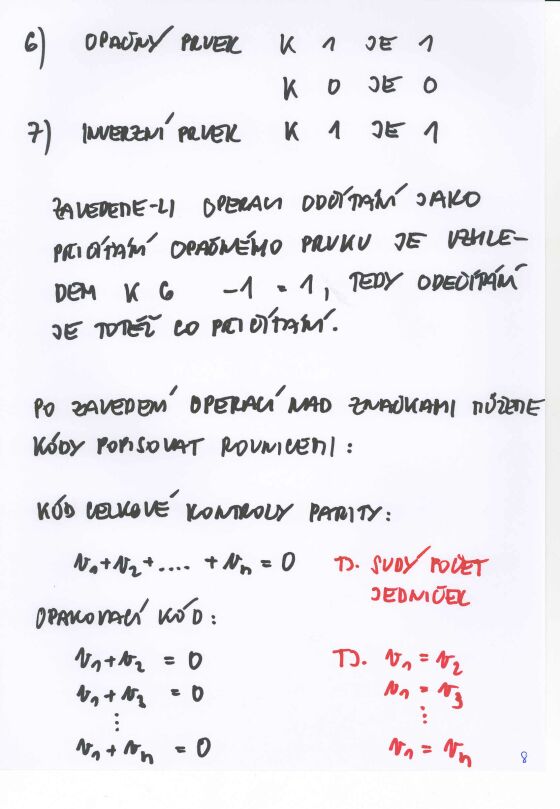 6) OPAČNÝ PRVEK K 1 JE 1
K 0 JE 0
7) INVERZNÍ PRVEK K 1 JE 1
ZAVEDEME-LI OPERACI ODČÍTÁNÍ JAKO
PŘIČÍTÁNÍ OPAČNÉHO PRVKU JE VZHLE-
DEM K 6 -1 = 1, TEDY ODEČÍTÁNÍ
JE TOTÉŽ CO PŘIČÍTÁNÍ.
PO ZAVEDENÍ OPERACÍ NAD ZNAČKAMI MŮŽEME
KÓDY POPISOVAT ROVNICEMI:
KÓD CELKOVÉ KONTROLY PARITY:
v₁+v₂+.... +vₙ = 0 TJ. SUDÝ POČET
JEDNIČEK
OPAKOVACÍ KÓD:
v₁+v₂ = 0 TJ. v₁ = v₂
v₁+v₃ = 0 v₁ = v₃
⋮ ⋮
v₁+vₙ = 0 v₁ = vₙ
8